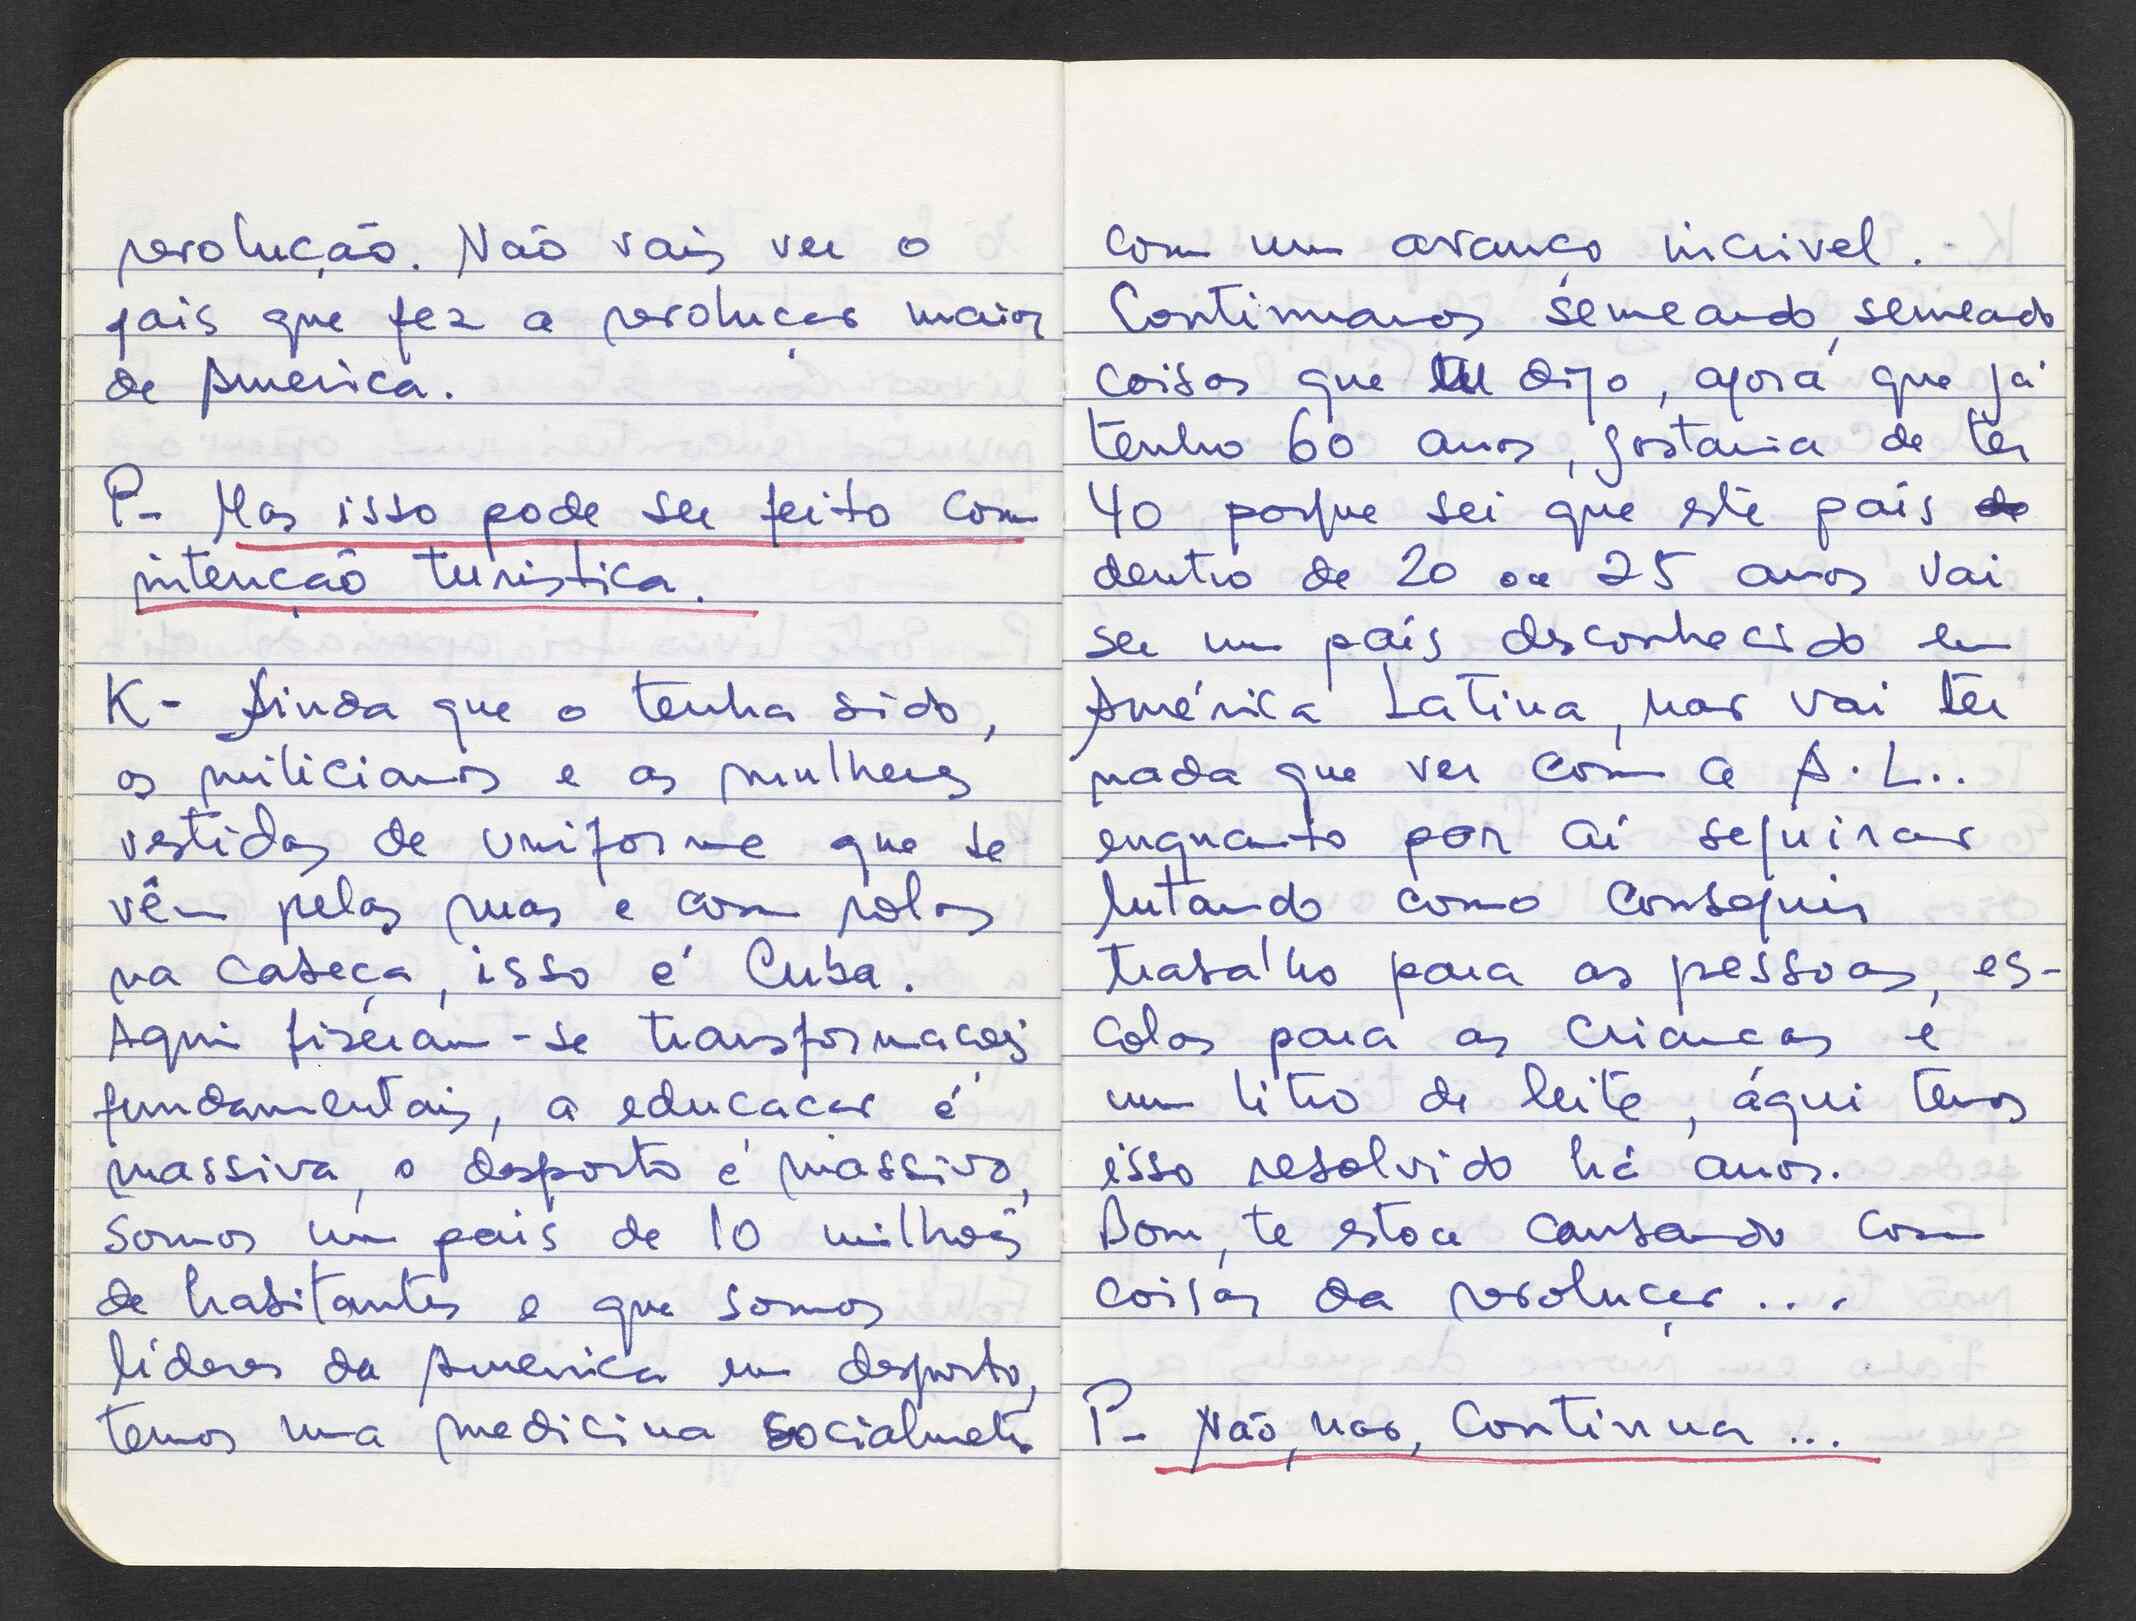 revolução. Não vais ver o
pais que fez a revolução maior
de America.
P- Mas isso pode ser feito com
intenção turistica.
K- Ainda que o tenha sido,
os milicianos e as mulheres
vestidas de uniforme que se
vêm pelas ruas e com rolos
na cabeça, isso é Cuba.
Aqui fizéram-se transformações
fundamentais, a educacão é
massiva, o desporto é massivo,
somos um pais de 10 milhoes
de habitantes e que somos
líderes da America em desporto,
temos uma medicina socialmente
com um avanço incrivel.
Continuamos semeando, semeando
coisas que digo, agora que já
tenho 60 anos, gostaria de ter
40 porque sei que este país
dentro de 20 ou 25 anos vai
ser um país desconhecido em
América Latina, nao vai ter
nada que ver com a A.L..
enquanto por aí seguirao
lutando como conseguir
trabalho para as pessoas, es-
colas para as criancas e
um litro de leite, aqui temos
isso resolvido há anos.
Bom, te estou cansando com
coisas da revoluçao ....
P- Não, nao, continua ...